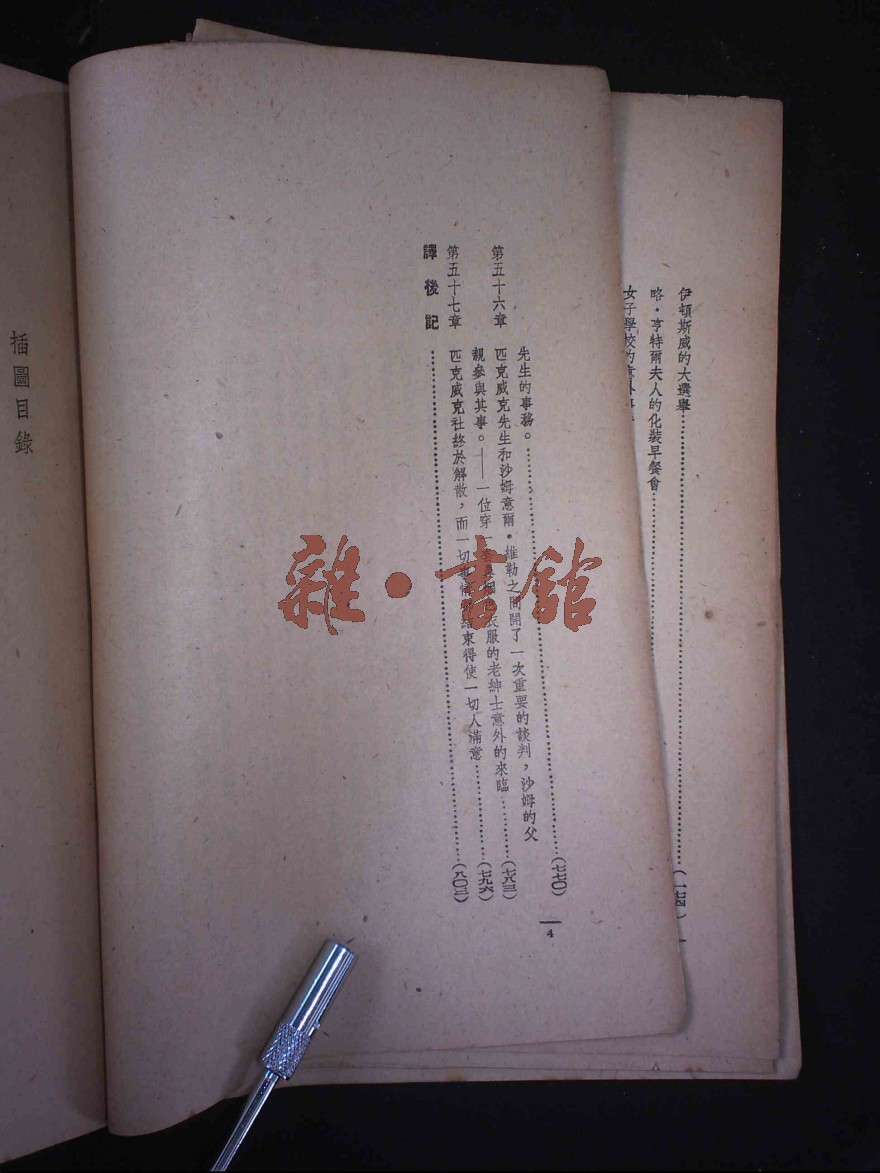 伊頓斯威的大選舉……(一七四)
略·亨特爾夫人的化裝早餐會……
女子學校的意外事
先生的事務。……(七七〇)
第五十六章 匹克威克先生和沙姆意爾·維勒之間開了一次重要的談判,沙姆的父
親參與其事。——一位穿一衣服的老紳士意外的來臨……(七八三)
第五十七章 匹克威克社終於解散,而一切結束得使一切人滿意……(七九六)
譯後記……(八〇三)
4
插圖目錄
雜·書館